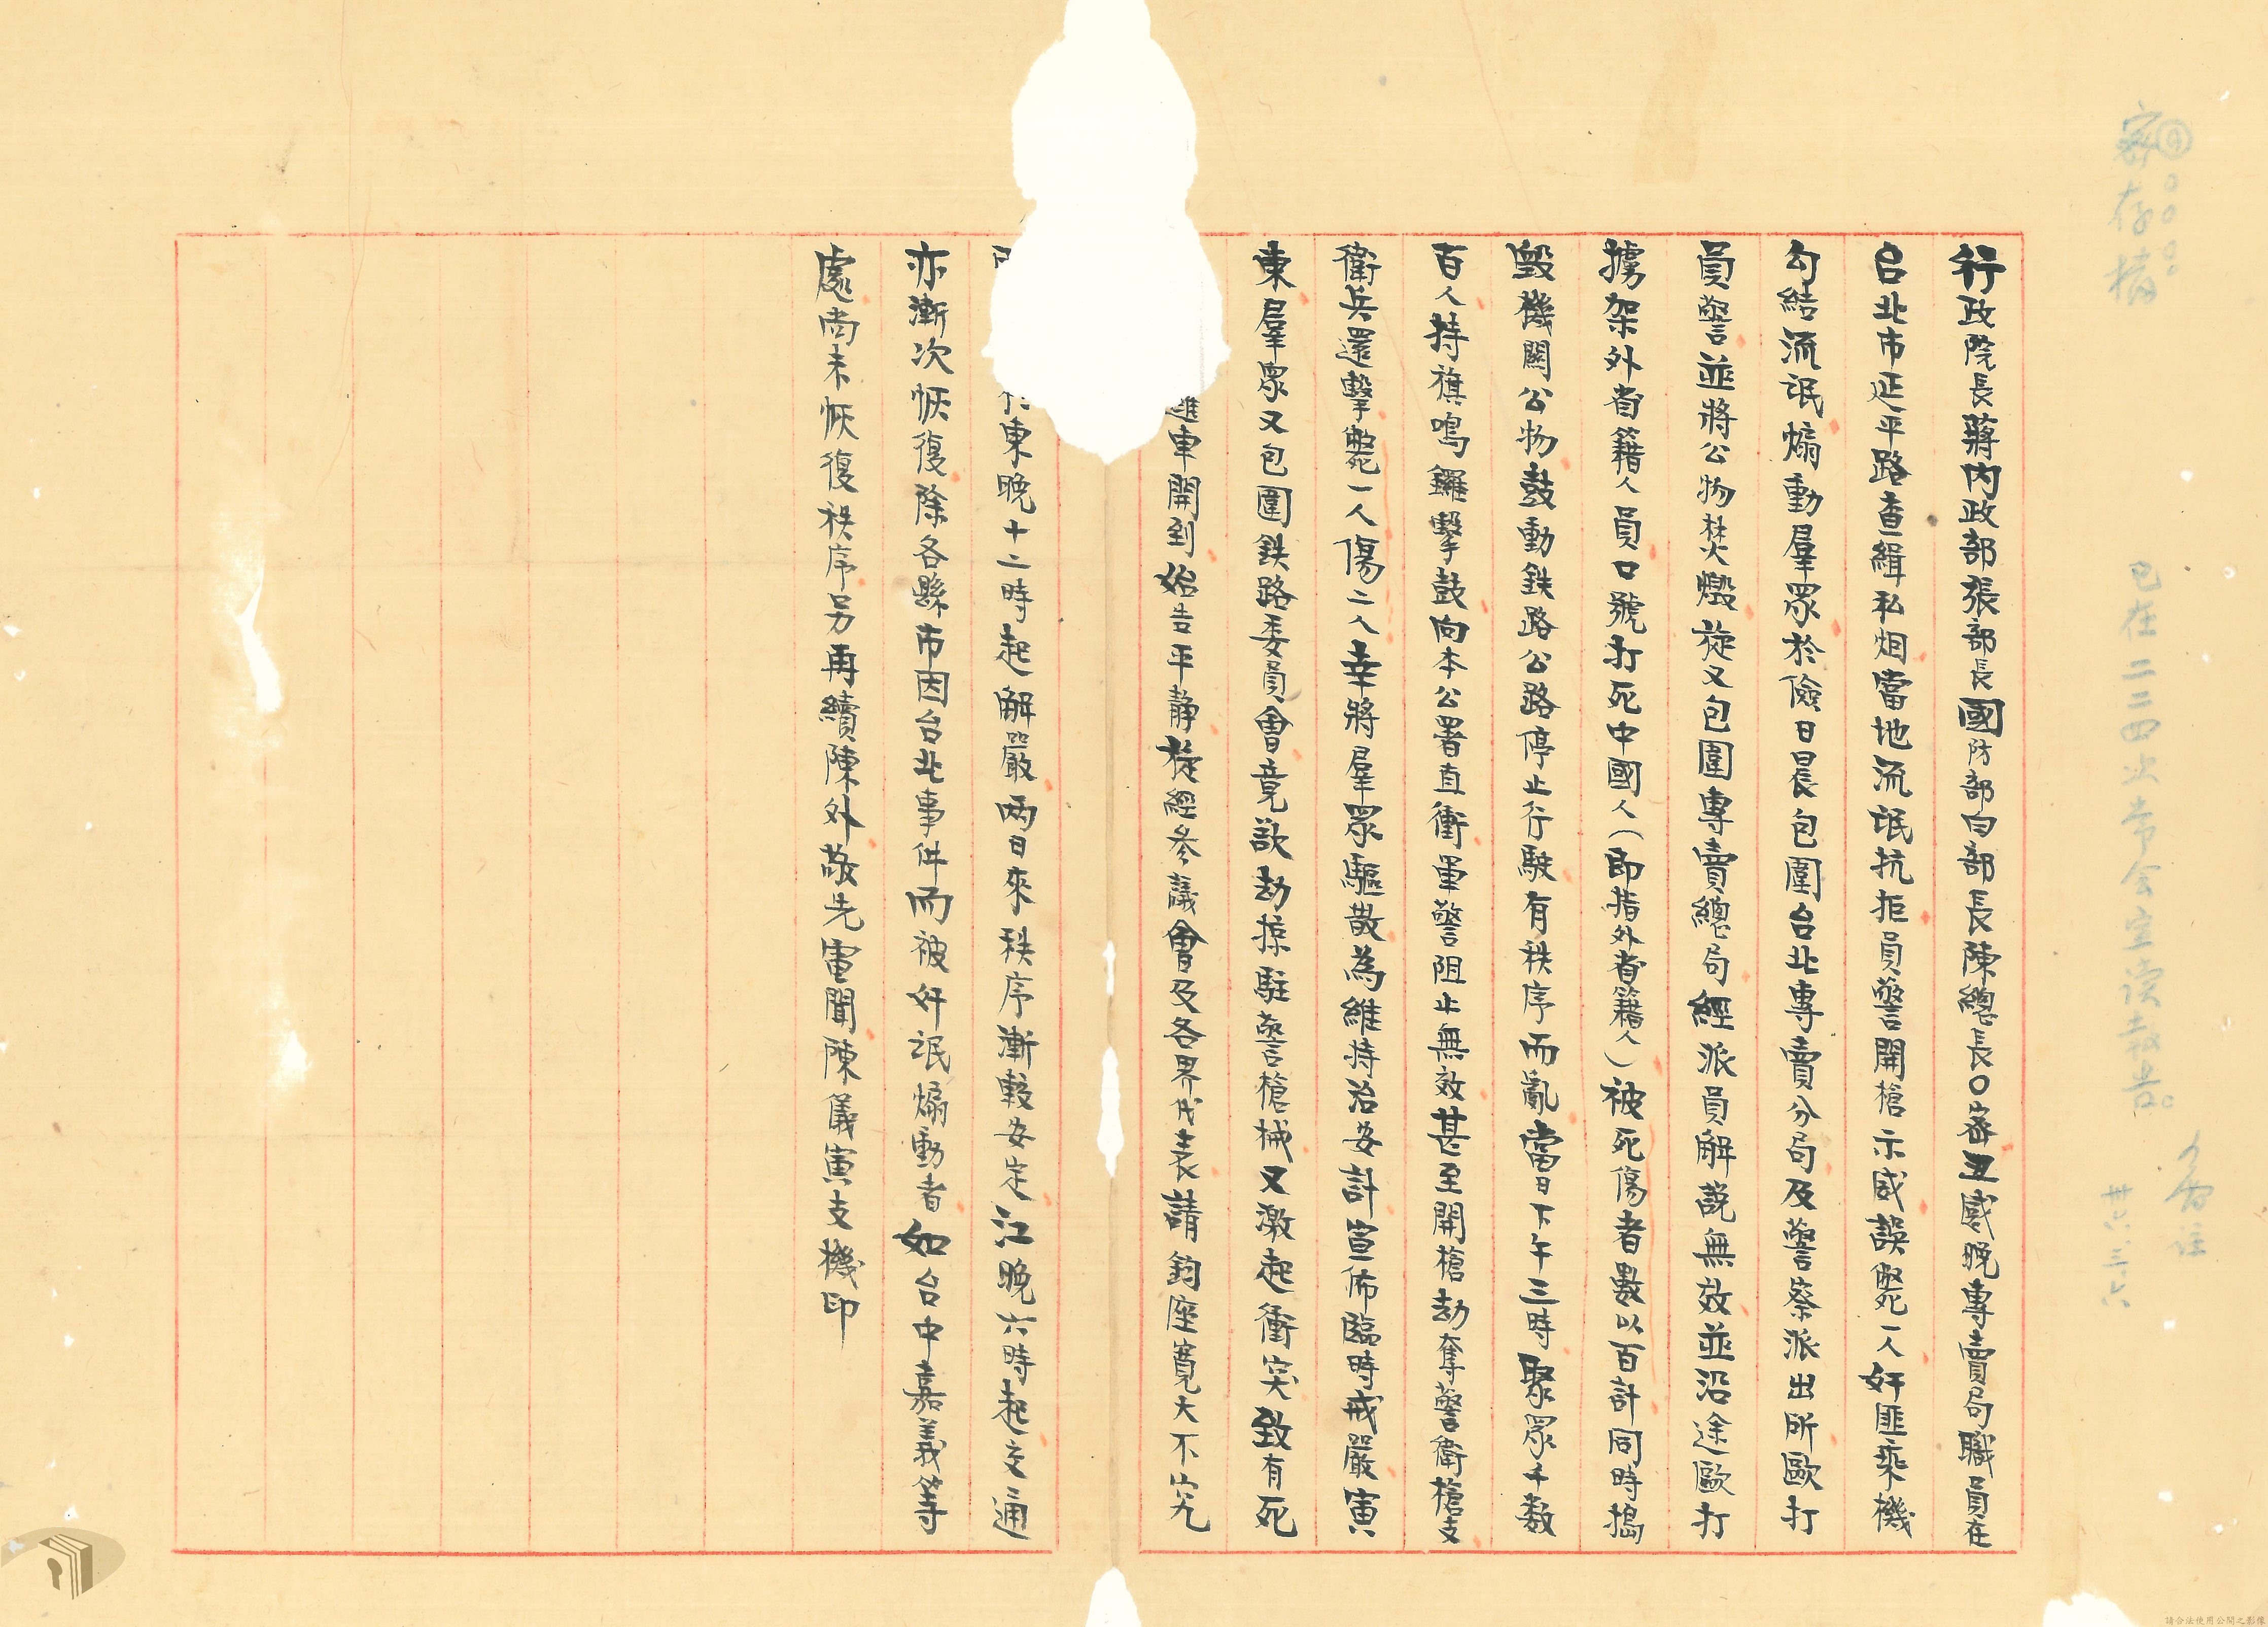 密存檔
已在二二四次常会宣读報告。
卅六.三.六
行政院長蔣內政部張部長國防部白部長陳總長〇密丑感晚專賣局職員在
台北市延平路查緝私烟當地流氓抗拒員警開槍示威誤斃一人奸匪乘機
勾結流氓煽動羣眾於儉日晨包圍台北專賣分局及警察派出所歐打
員警並將公物焚燬旋又包圍專賣總局經派員解説無效並沿途歐打
擄架外省籍人員口號打死中國人（即指外省籍人）被死傷者數以百計同時搗
毀機關公物鼓動鉄路公路停止行駛有秩序而亂當日下午三時聚眾千數
百人持旗鳴鑼擊鼓向本公署直衝軍警阻止無效甚至開槍劫奪警衛槍支
衛兵還擊斃一人傷二人幸將羣眾驅散為維持治安計宣佈臨時戒嚴寅
東羣眾又包圍鉄路委員會竟欲劫掠駐警槍械又激起衝突致有死
邏車開到始告平靜旋經參議會及各界代表請鈞座寬大不究
東晚十二時起解嚴兩日來秩序漸較安定江晚六時起交通
亦漸次恢復除各縣市因台北事件而被奸氓煽動者如台中嘉義等
處尚未恢復秩序另再續陳外敬先電聞陳儀寅支機印
請合法使用公開之影像